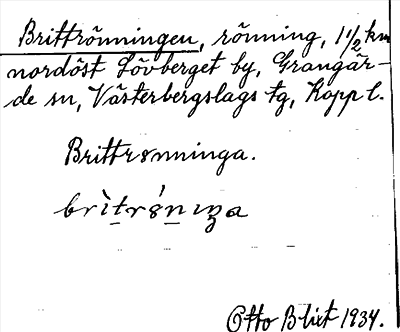 Brittrönningen, rönning, 1 1/2 km
nordöst Lövberget by, Grangär-
de sn, Västerbergslags tg, Kopp l.
Brittrønninga.
Otto Blixt 1934.